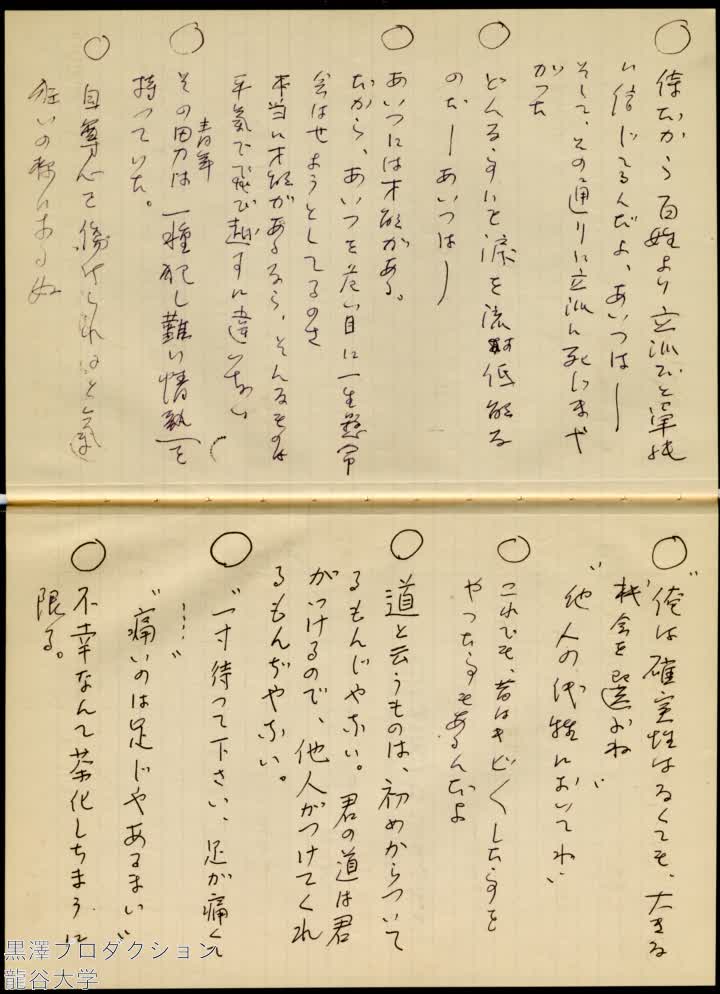 ○ 侍だから百姓より立派だと単純
に信じてるんだよ、あいつは――
そして、その通りに立派に死にまや
がつた
○ どんな
のだ――あいつは――
○ あいつには才能がある。
だから、あいつを危い目に一生懸命
会はせようとしてるのさ
本当に才能があるなら、そんなものは
平気で飛び越すに違いない
○ その男は一種犯し難い情熱を
青年
持つていた。
○ 自尊心を傷けられると気
狂いの様になるぬ
○ "俺は確実性はなくても、大きな
機会を選ぶね"
"他人の代牲においてね"
○ これでも、昔はキビ〳〵した事を
やつた事もあるんだよ
○ 道と云うものは、初めからついて
るもんじやない。君の道は君
がつけるので、他人がつけてくれ
るもんぢやない。
○ "一寸待つて下さい、足が痛くて
……"
"痛いのは足じやあるまい"
○ 不幸なんて茶化しちまうに
限る。
黒澤プロダクション
龍谷大学